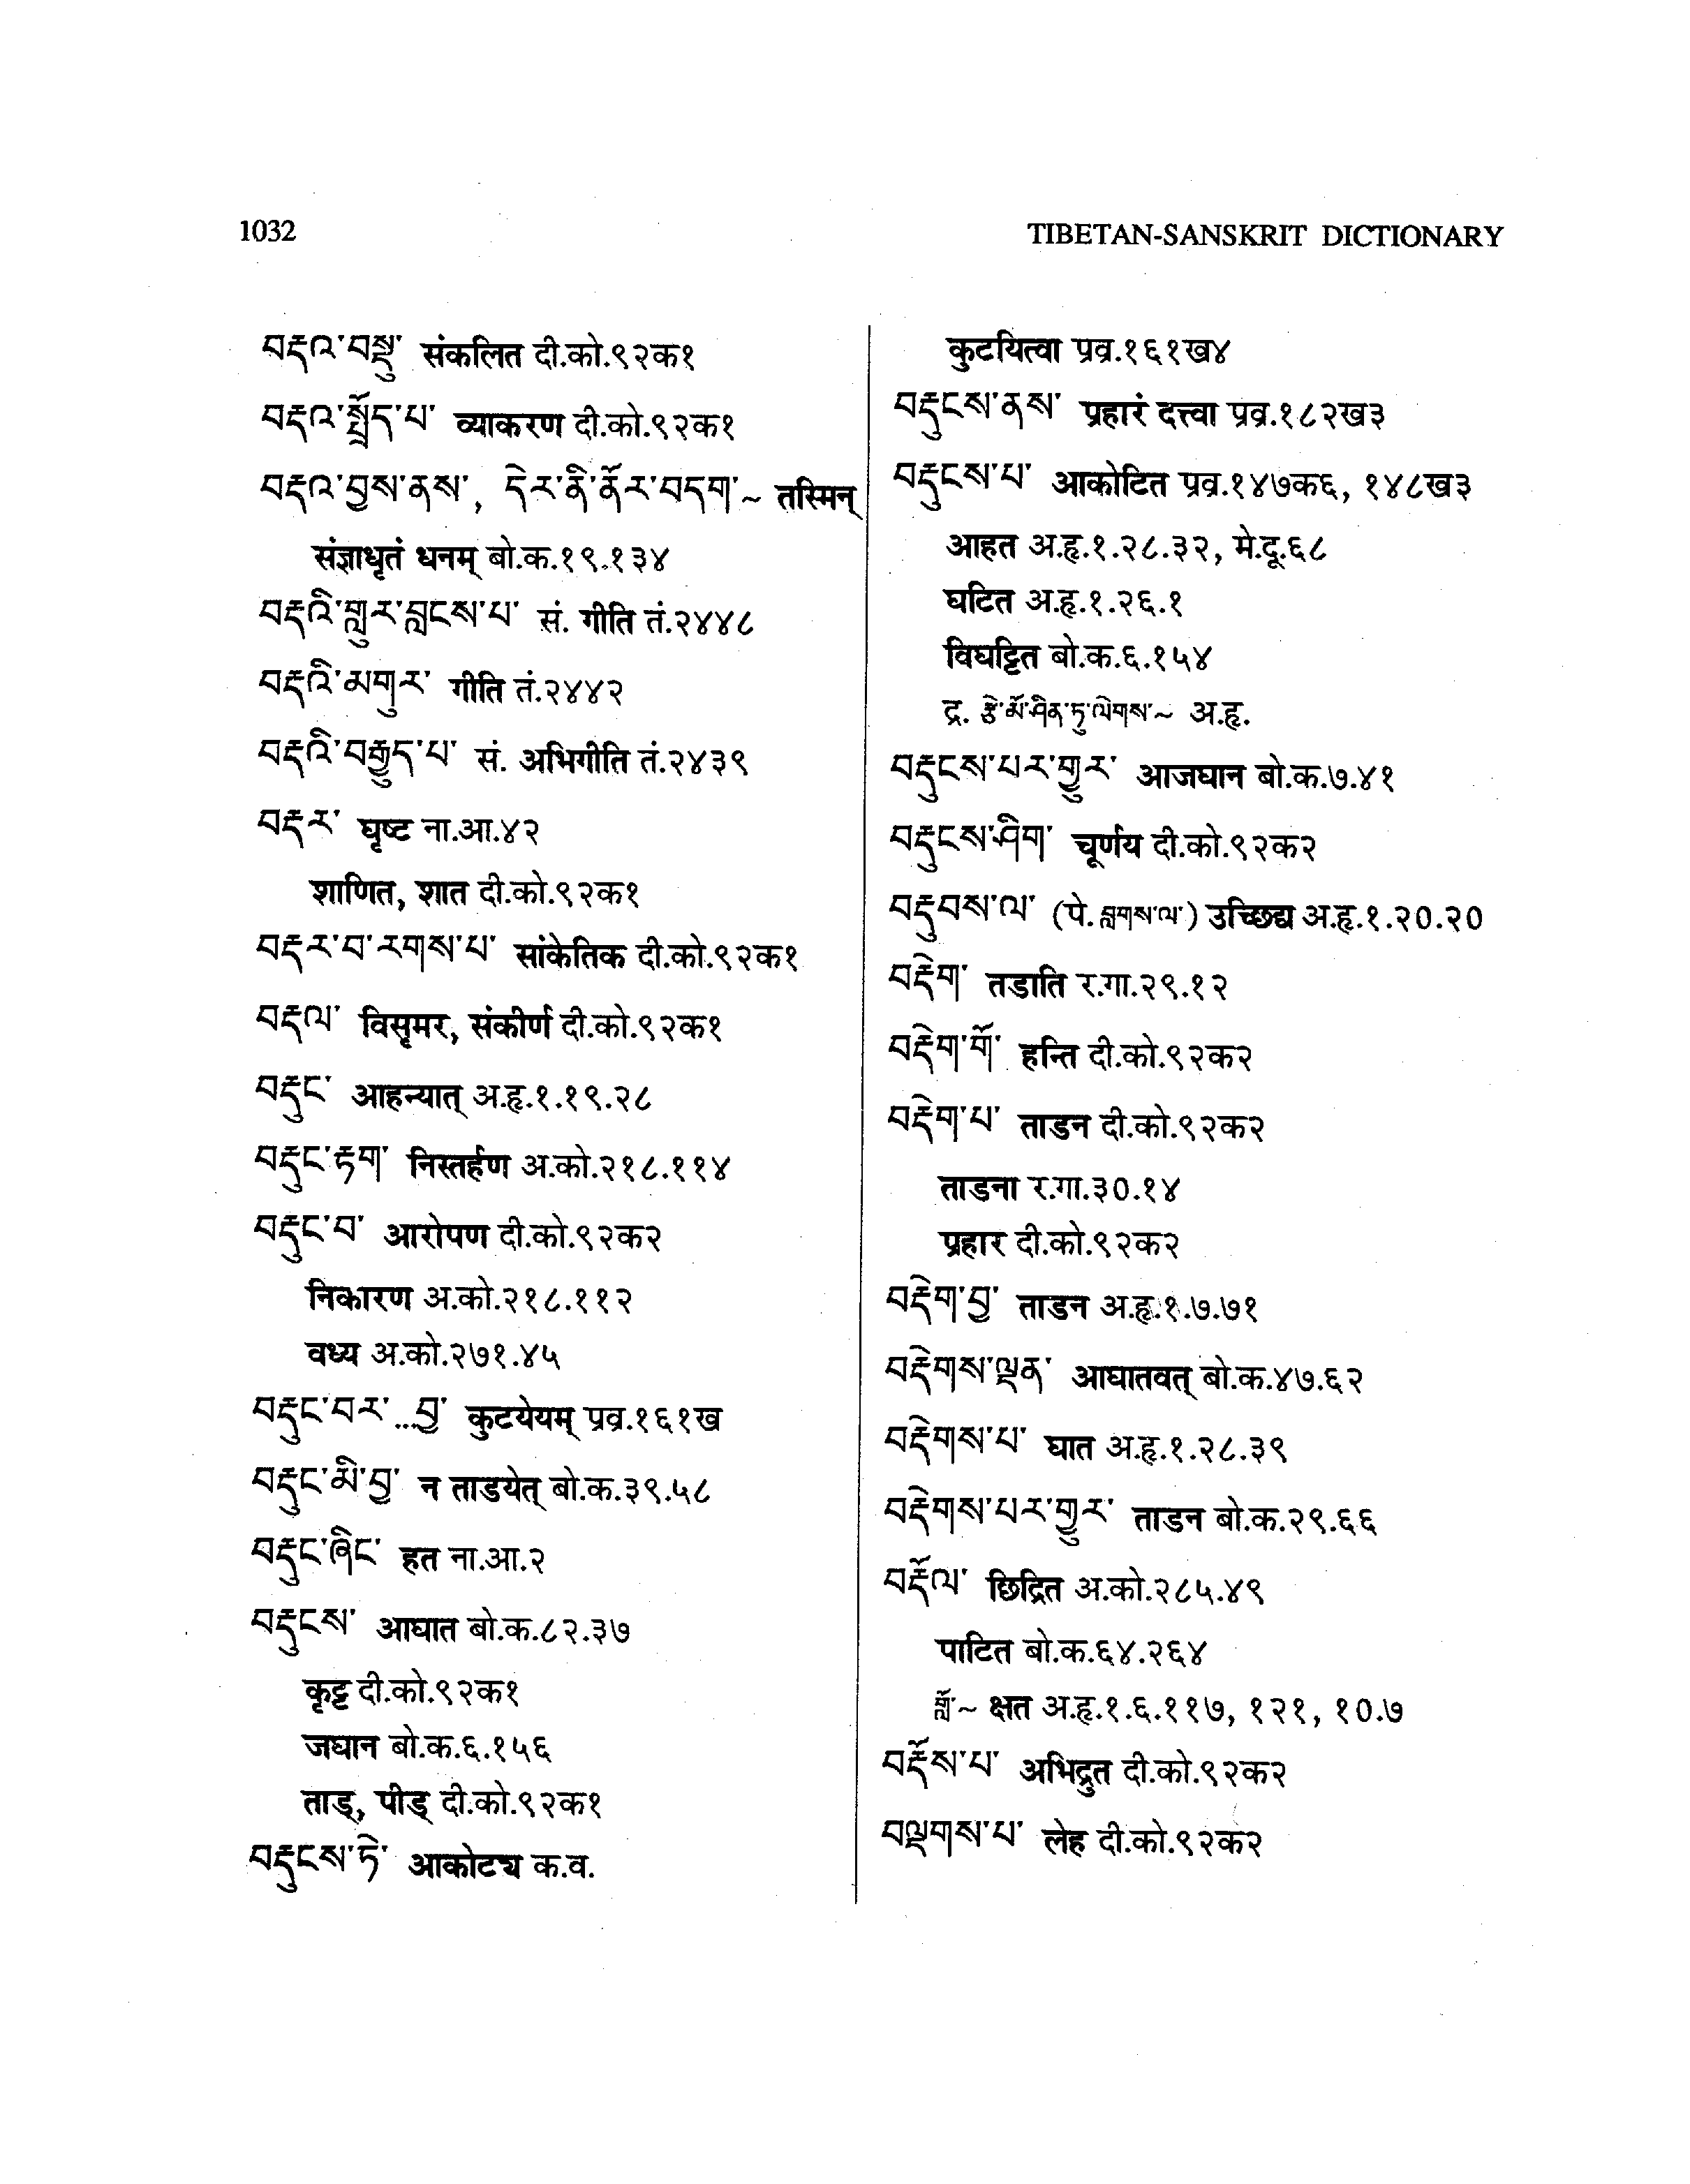 1032
TIBETAN-SANSKRIT DICTIONARY
བརྡའ་བསྡུ་ संकलित दी.को.९२क१
བརྡའ་སྤྲོད་པ་ व्याकरण दी.को.९२क१
བརྡའ་བྱས་ནས་, དེར་ནི་ནོར་བདག་~ तस्मिन्
संज्ञाधृतं धनम् बो.क.१९.१३४
བརྡའི་གླུར་བླངས་པ་ सं. गीति तं.२४४८
བརྡའི་མགུར་ गीति तं.२४४२
བརྡའི་བརྒྱུད་པ་ सं. अभिगीति तं.२४३९
བརྡར་ घृष्ट ना.आ.४२
शाणित, शात दी.को.९२क१
བརྡར་བ་རགས་པ་ सांकेतिक दी.को.९२क१
བརྡལ་ विसृमर, संकीर्ण दी.को.९२क१
བརྡུང་ आहन्यात् अ.हृ.१.१९.२८
བརྡུང་རྟག་ निस्तर्हण अ.को.२१८.११४
བརྡུང་བ་ आरोपण दी.को.९२क२
निकारण अ.को.२१८.११२
वध्य अ.को.२७१.४५
བརྡུང་བར་...བྱ་ कुटयेयम् प्रव्र.१६१ख
བརྡུང་མི་བྱ་ न ताडयेत् बो.क.३९.५८
བརྡུང་ཞིང་ हत ना.आ.२
བརྡུངས་ आघात बो.क.८२.३७
कृट्ट दी.को.९२क१
जघान बो.क.६.१५६
ताड्, पीड् दी.को.९२क१
བརྡུངས་ཏེ་ आकोट्य क.व.
कुटयित्वा प्रव्र.१६१ख४
བརྡུངས་ནས་ प्रहारं दत्त्वा प्रव्र.१८२ख३
བརྡུངས་པ་ आकोटित प्रव्र.१४७क६, १४८ख३
आहत अ.हृ.१.२८.३२, मे.दू.६८
घटित अ.हृ.१.२६.१
विघट्टित बो.क.६.१५४
द्र. རྩེ་མོ་ཤིན་ཏུ་ལེགས་~ अ.हृ.
བརྡུངས་པར་གྱུར་ आजघान बो.क.७.४१
བརྡུངས་ཤིག་ चूर्णय दी.को.९२क२
བརྡུབས་ལ་ (पे. བླགས་ལ་) उच्छिद्य अ.हृ.१.२०.२०
བརྡེག་ तडाति र.गा.२९.१२
བརྡེག་གོ་ हन्ति दी.को.९२क२
བརྡེག་པ་ ताडन दी.को.९२क२
ताडना र.गा.३०.१४
प्रहार दी.को.९२क२
བརྡེག་བྱ་ ताडन अ.हृ.१.७.७१
བརྡེགས་ལྡན་ आघातवत् बो.क.४७.६२
བརྡེགས་པ་ घात अ.हृ.१.२८.३९
བརྡེགས་པར་གྱུར་ ताडन बो.क.२९.६६
བརྡོལ་ छिद्रित अ.को.२८५.४९
पाटित बो.क.६४.२६४
གློ་~ क्षत अ.हृ.१.६.११७, १२१, १०.७
བརྡོས་པ་ अभिद्रुत दी.को.९२क२
བལྡགས་པ་ लेह दी.को.९२क२